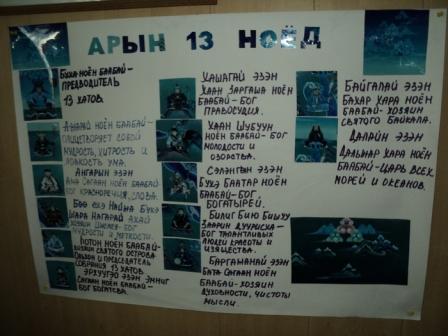 АРЫН 13 НОЁД
БУХА-НОЁН БААБАЙ-
ПРЕДВОДИТЕЛЬ
13 ХАТОВ.
НОЁН БААБАЙ-
ОЛИЦЕТВОРЯЕТ СОБОЙ
МУДРОСТЬ, ХИТРОСТЬ И
ЛОВКОСТЬ УМА.
АНГАРЫН ЭЗЭН
АМА САГААН НОЁН БААБАЙ-
БОГ КРАСНОРЕЧИЯ, СЛОВА.
НОЁН БААБАЙ-
ХОЗЯИН СВЯТОГО ОСТРОВА
ОЛЬХОН И ПРЕДСЕДАТЕЛЬ
СОБРАНИЯ 13 ХАТОВ.
ЭРХҮҮГЭЙ ЭЗЭН ЭМНИГ
САГААН НОЁН БААБАЙ-
БОГ БОГАТСТВА.
УШАГАЙ ЭЗЭН
ХААН ЗАРГАША НОЁН
БААБАЙ-БОГ
ПРАВОСУДИЯ.
ХААН ШУБУУН
НОЁН БААБАЙ-БОГ
МОЛОДОСТИ И
ОЗОРСТВА.
СЭЛЭНГЫН ЭЗЭН
БУХЭ БААТАР НОЁН
БААБАЙ-БОГ
БОГАТЫРЕЙ.
ЗААРИН ДУУРИСХА-
БОГ ТАЛАНТЛИВЫХ
ЛЮДЕЙ КРАСОТЫ И
ИЗЯЩЕСТВА.
БАРГАЖАНАЙ ЭЗЭН
БАТА САГААН НОЁН
БААБАЙ-ХОЗЯИН
ДУХОВНОСТИ, ЧИСТОТЫ
МЫСЛИ.
БАЙГАЛАЙ ЭЗЭН
БАХАР ХАРА НОЁН
БААБАЙ-ХОЗЯИН
СВЯТОГО БАЙКАЛА.
ДАЛАЙН ЭЗЭН
ДАЛЬМАР ХАРА НОЁН
БААБАЙ-ЦАРЬ ВСЕХ
МОРЕЙ И ОКЕАНОВ.